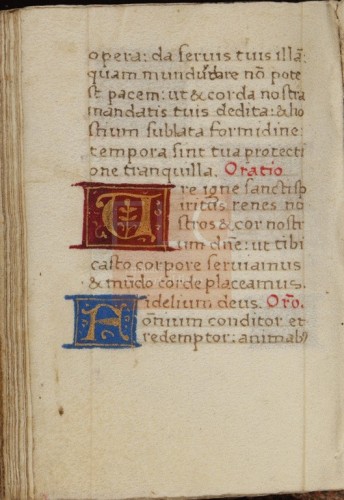 opera: da seruis tuis illã:
quam mundus dare nõ pote
st pacem: ut & corda nostra
mandatis tuis dedita: & ho
stium sublata formidine:
tempora sint tua protecti
one tranquilla. Oratio
Ure igne sancti sp
iritus renes no
stros & cor nostr
um dñe: ut tibi
casto corpore seruiamus
& mũdo corde placeamus.
Fidelium deus. Orõ.
om̃ium conditor et
redemptor: animab9